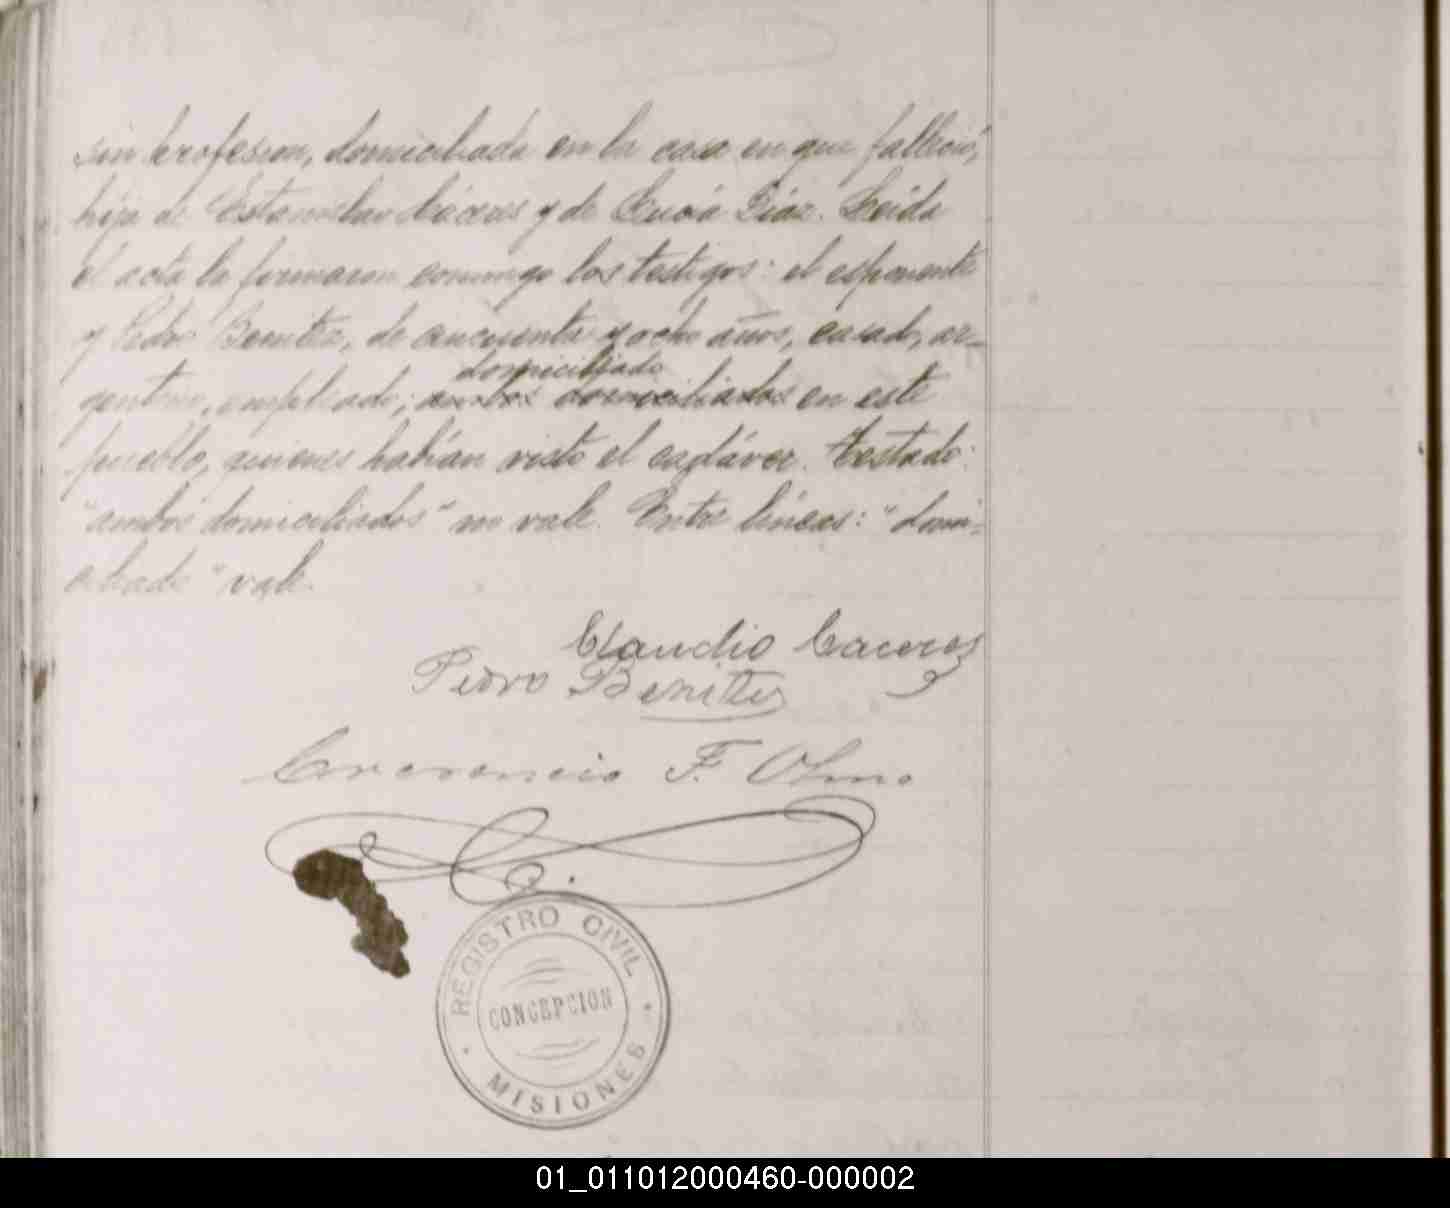 sin profesion, domiciliada en la casa en que falleció,
hija de Estanislao Cáceres y de Lucía Díaz. Leida
el acta la firmaron conmigo los testigos: el esponente
y Pedro Benitez, de cincuenta y ocho años, casado, ar-
domiciliado
gentino, empleado; ambos domiciliados en este
pueblo, quienes habían visto el cadáver. Testado:
"ambos domiciliados" no vale. Entre líneas: "domi-
ciliado" vale.
Claudio Caceres
Pedro Benitez
F. Olmo
REGISTRO CIVIL
CONCEPCION
MISIONES
01_011012000460-000002